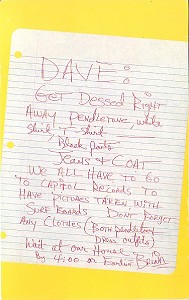 DAVE:
GET DRESSED RIGHT
AWAY, PENDLETONE, white
shirt, T-shirt
Black Pants
Jeans & COAT
WE ALL HAVE TO GO
TO CAPITOL RECORDS TO
HAVE PICTURES TAKEN WITH
SURF BOARDS. DONT FORGET
ANY CLOTHES (BOTH pendleton
DRESS outfits)
Wait at our House
By 4:00 or Earlier Brian